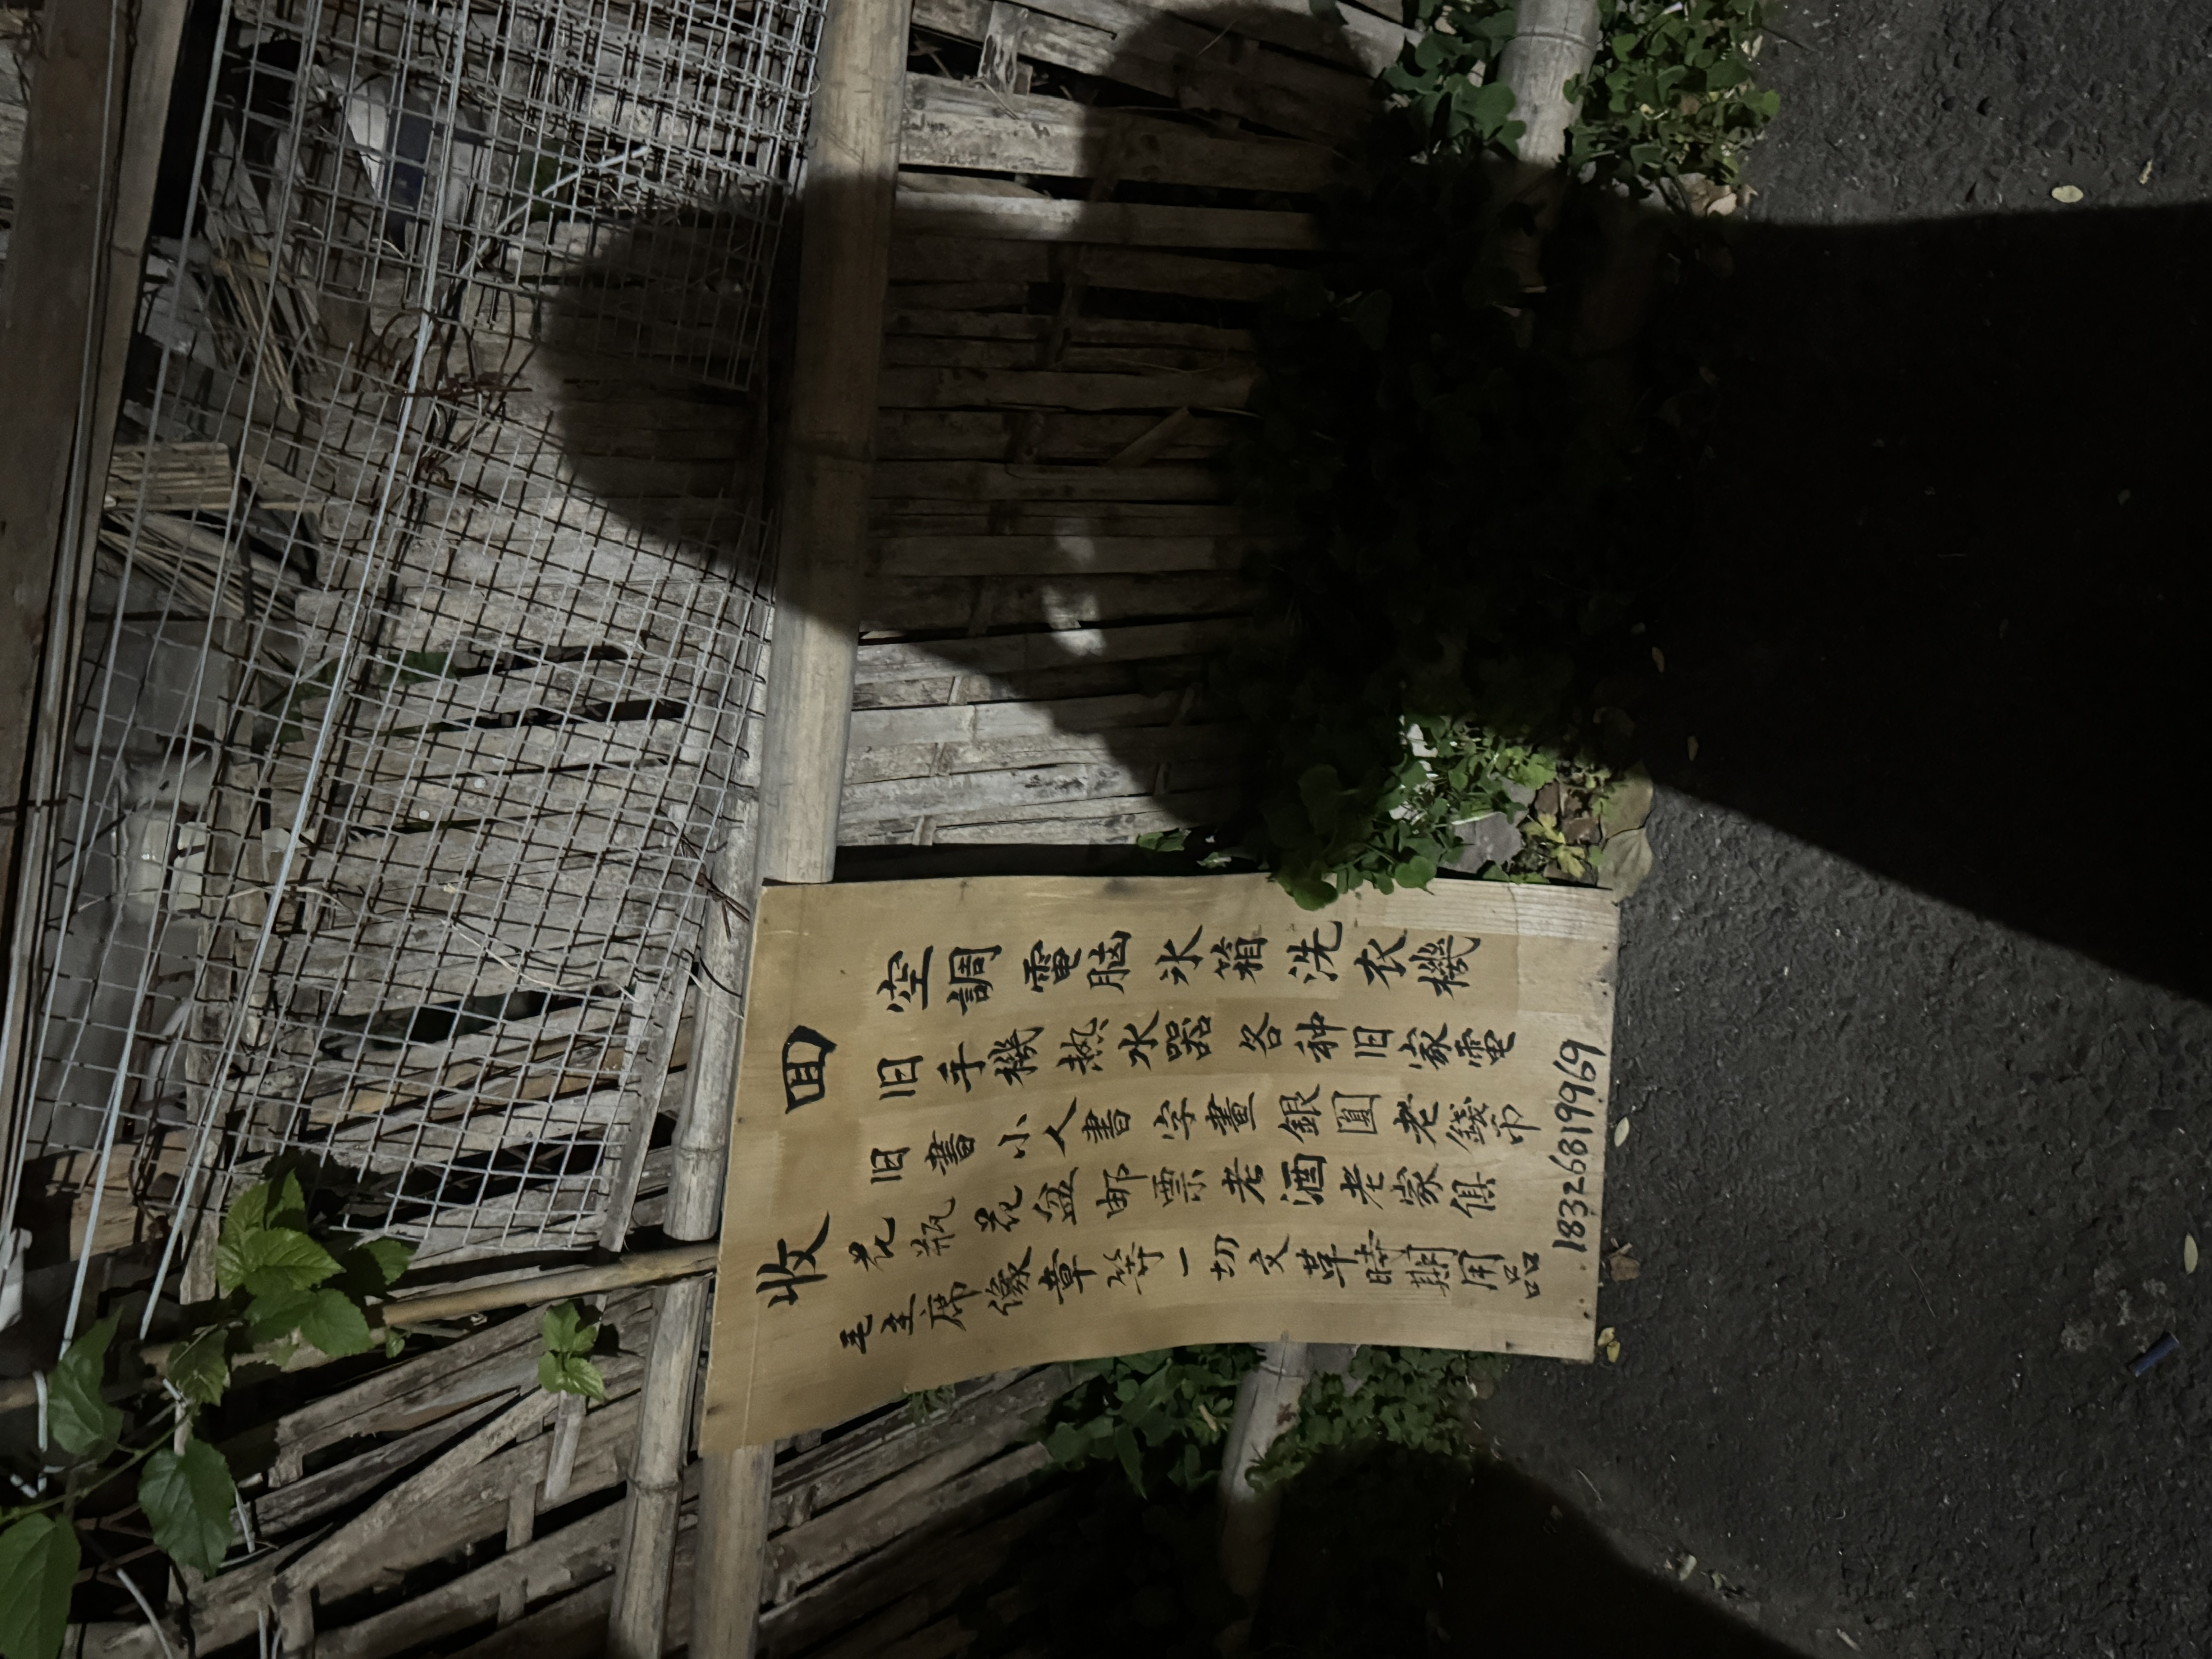 回收
空調電脑氷箱洗衣機
旧手機熱水器各种旧家電
旧書小人書字畫銀圓老錢币
花瓶花盆邮票老酒老家俱
毛主席像章等一切文革時期用品
18326819969